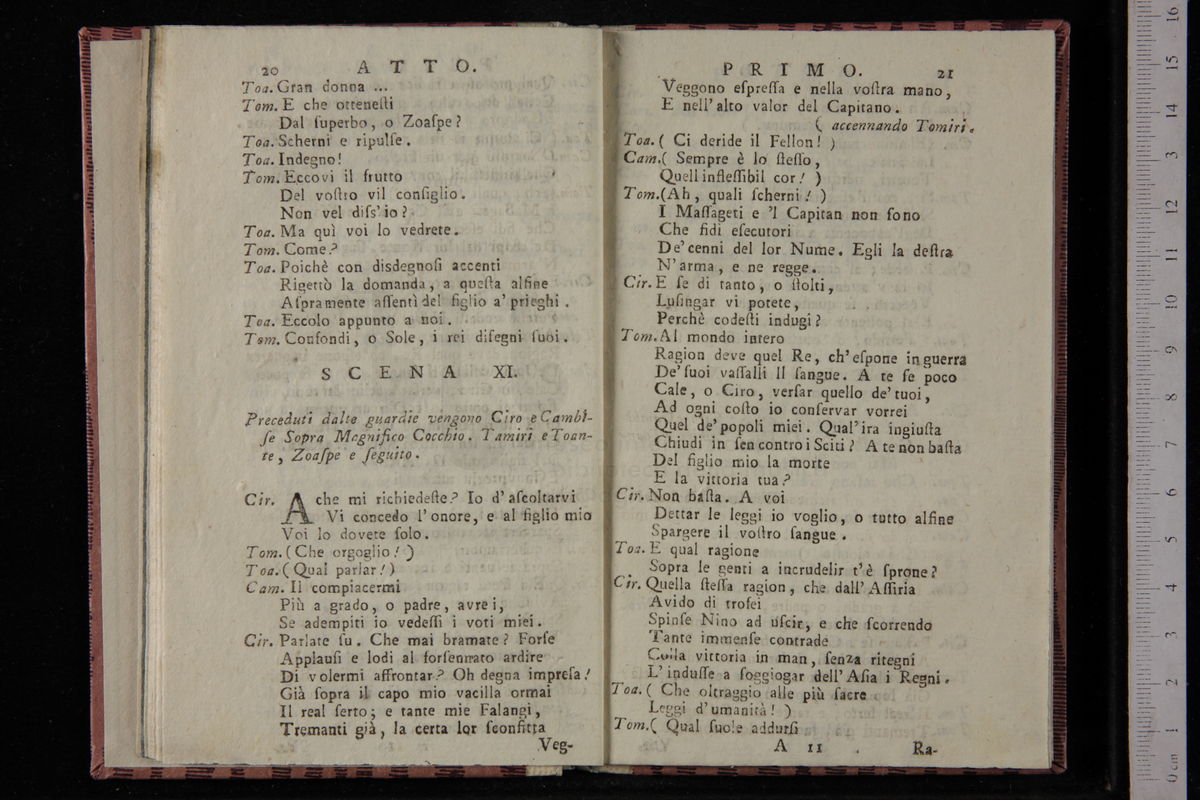 20 A T T O.
Toa. Gran donna ...
Tom. E che otteneſti
Dal ſuperbo, o Zoaſpe?
Toa. Scherni e ripulſe.
Toa. Indegno!
Tom. Eccovi il frutto
Del voſtro vil conſiglio.
Non vel diſs' io?
Toa. Ma quì voi lo vedrete.
Tom. Come?
Toa. Poichè con disdegnoſi accenti
Rigettò la domanda, a queſta alfine
Aſpramente aſſentì del figlio a' prieghi.
Toa. Eccolo appunto a noi.
Tom. Confondi, o Sole, i rei diſegni ſuoi.
S C E N A XI.
Preceduti dalte guardie vengono Ciro e Cambi-
ſe Sopra Magnifico Cocchio. Tamiri e Toan-
te, Zoaſpe e ſeguito.
Cir. A che mi richiedeſte? Io d' aſcoltarvi
Vi concedo l'onore, e al figlio mio
Voi lo dovete ſolo.
Tom. (Che orgoglio!)
Toa. (Qual parlar!)
Cam. Il compiacermi
Più a grado, o padre, avrei,
Se adempiti io vedeſſi i voti miei.
Cir. Parlate ſu. Che mai bramate? Forſe
Applauſi e lodi al forſennato ardire
Di volermi affrontar? Oh degna impreſa!
Già ſopra il capo mio vacilla ormai
Il real ſerto; e tante mie Falangi,
Tremanti già, la certa lor ſconfitta
Veg-
P R I M O. 21
Veggono eſpreſſa e nella voſtra mano,
E nell' alto valor del Capitano.
( accennando Tomiri.
Toa. ( Ci deride il Fellon! )
Cam. ( Sempre è lo ſteſſo,
Quell infleſſibil cor! )
Tom. (Ah, quali ſcherni! )
I Maſſageti e 'l Capitan non ſono
Che fidi eſecutori
De' cenni del lor Nume. Egli la deſtra
N' arma, e ne regge.
Cir. E ſe di tanto, o ſtolti,
Luſingar vi potete,
Perchè codeſti indugi?
Tom. Al mondo intero
Ragion deve quel Re, ch' eſpone in guerra
De' ſuoi vaſſalli Il ſangue. A te ſe poco
Cale, o Ciro, verſar quello de' tuoi,
Ad ogni coſto io conſervar vorrei
Quel de' popoli miei. Qual' ira ingiuſta
Chiudi in ſen contro i Sciti? A te non baſta
Del figlio mio la morte
E la vittoria tua?
Cir. Non baſta. A voi
Dettar le leggi io voglio, o tutto alfine
Spargere il voſtro ſangue.
Toa. E qual ragione
Sopra le genti a incrudelir t' è ſprone?
Cir. Quella ſteſſa ragion, che dall' Aſſiria
Avido di trofei
Spinſe Nino ad uſcir, e che ſcorrendo
Tante immenſe contrade
Colla vittoria in man, ſenza ritegni
L' induſſe a ſoggiogar dell' Aſia i Regni.
Toa. ( Che oltraggio alle più ſacre
Leggi d' umanità! )
Tom. ( Qual ſuole addurſi
A 11 Ra-
16
15
14
13
12
11
10
9
8
7
6
5
4
3
2
1
0 cm